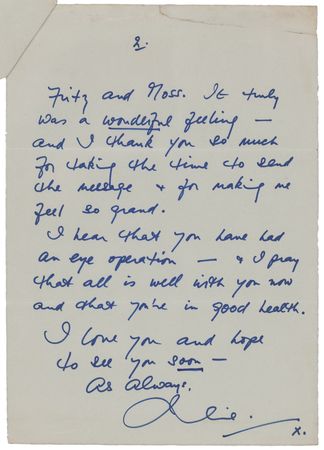 2.
Fritz and Moss. It truly
was a wonderful feeling —
and I thank you so much
for taking the time to send
the message & for making me
feel so grand.
I hear that you have had
an eye operation — & I pray
that all is well with you now
and that you're in good health.
I love you and hope
to see you soon —
As Always.
Julie.
x.